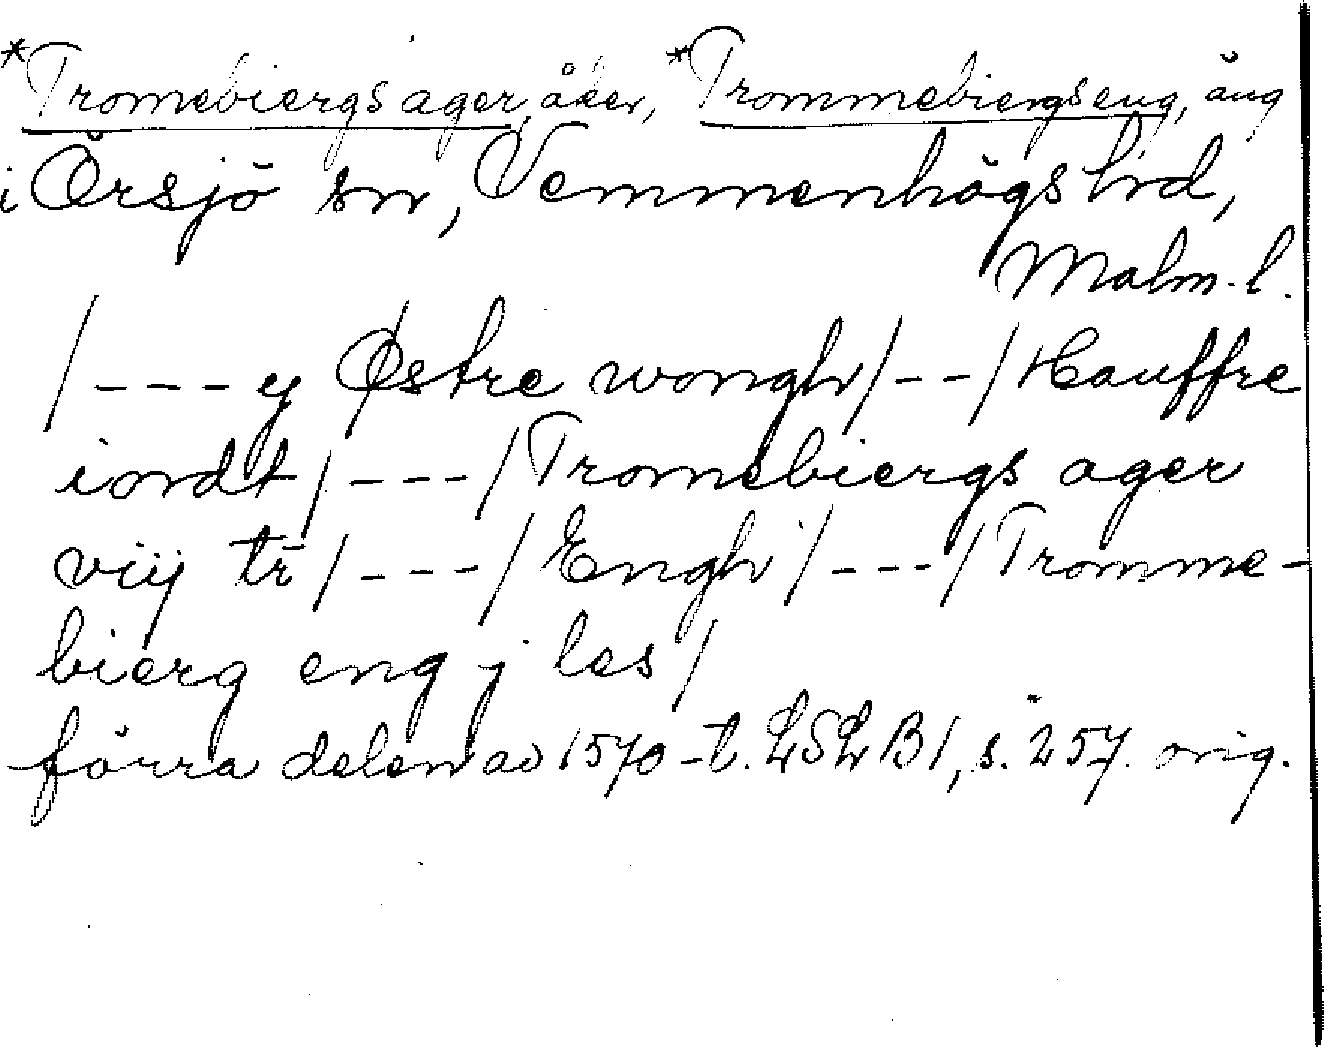 *Tromebiergs ager, åker, *Trommebiergs eng, äng
i Örsjö sn, Vemmenhögs hd,
Malm. l.
/---ej Østre wongh/--/Hauffre
iordt/---/Tromebiergs ager
viij tr̄/---/Engh/---/Tromme-
bierg eng j les/
förra delen av 1570-t. LSLB1, s. 257. orig.